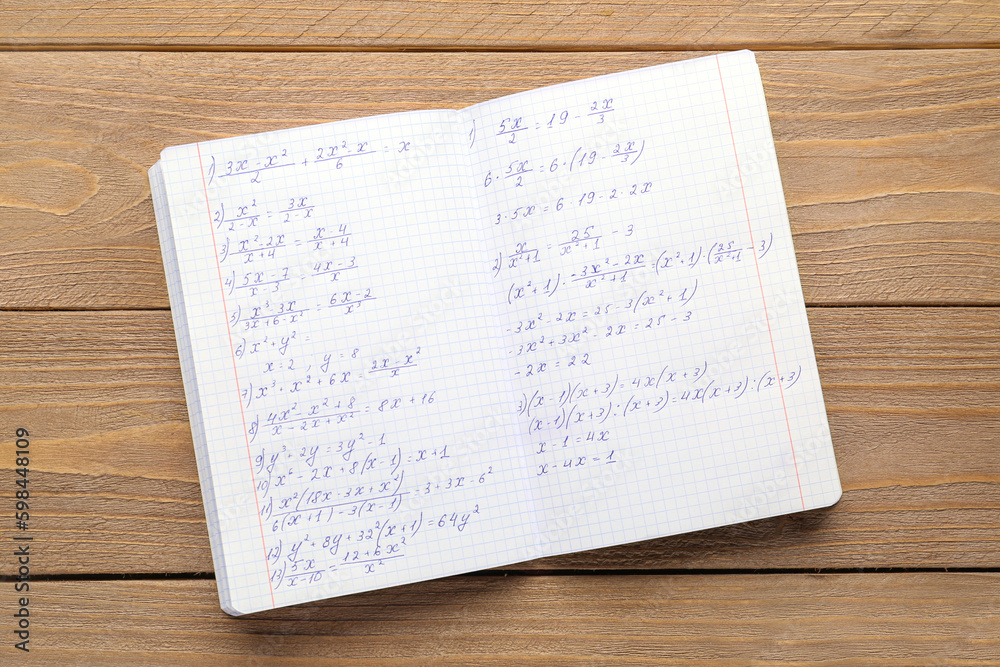 1) (3x - x²)/2 + (2x² · x)/6 = x
2) x²/(2-x) = 3x/(2-x)
3) (x² - 2x)/(x+4) = (x-4)/(x+4)
4) (5x-7)/(x-3) = (4x-3)/x
5) (x³ · 3x)/(3x+6-x²) = (6x-2)/x³
6) x² + y² =
x = 2 , y = 8
7) x³ + x² + 6x = (2x - x²)/x
8) (4x² - x² + 8)/(x - 2x + x²) = 8x + 16
9) y³ + 2y = 3y² - 1
10) x⁶ - 2x + 8(x-1) = x+1
11) x²(18x - 3x + x²)/(6(x+1) - 3(x-1)) = 3 + 3x - 6²
12) y² + 8y + 32²(x+1) = 64y²
13) 5x/(x-10) = (12+6x²)/x²
1) 5x/2 = 19 - 2x/3
6 · 5x/2 = 6 · (19 - 2x/3)
3 · 5x = 6 · 19 - 2 · 2x
2) x/(x²+1) = 25/(x²+1) - 3
(x²+1) · (-3x² - 2x)/(x²+1) = (x²+1) · (25/(x²+1) - 3)
-3x² - 2x = 25 - 3(x²+1)
-3x² + 3x² - 2x = 25 - 3
-2x = 22
3) (x-1)(x+3) = 4x(x+3)
(x-1)(x+3) : (x+3) = 4x(x+3) : (x+3)
x - 1 = 4x
x - 4x = 1
Adobe Stock | #598448109